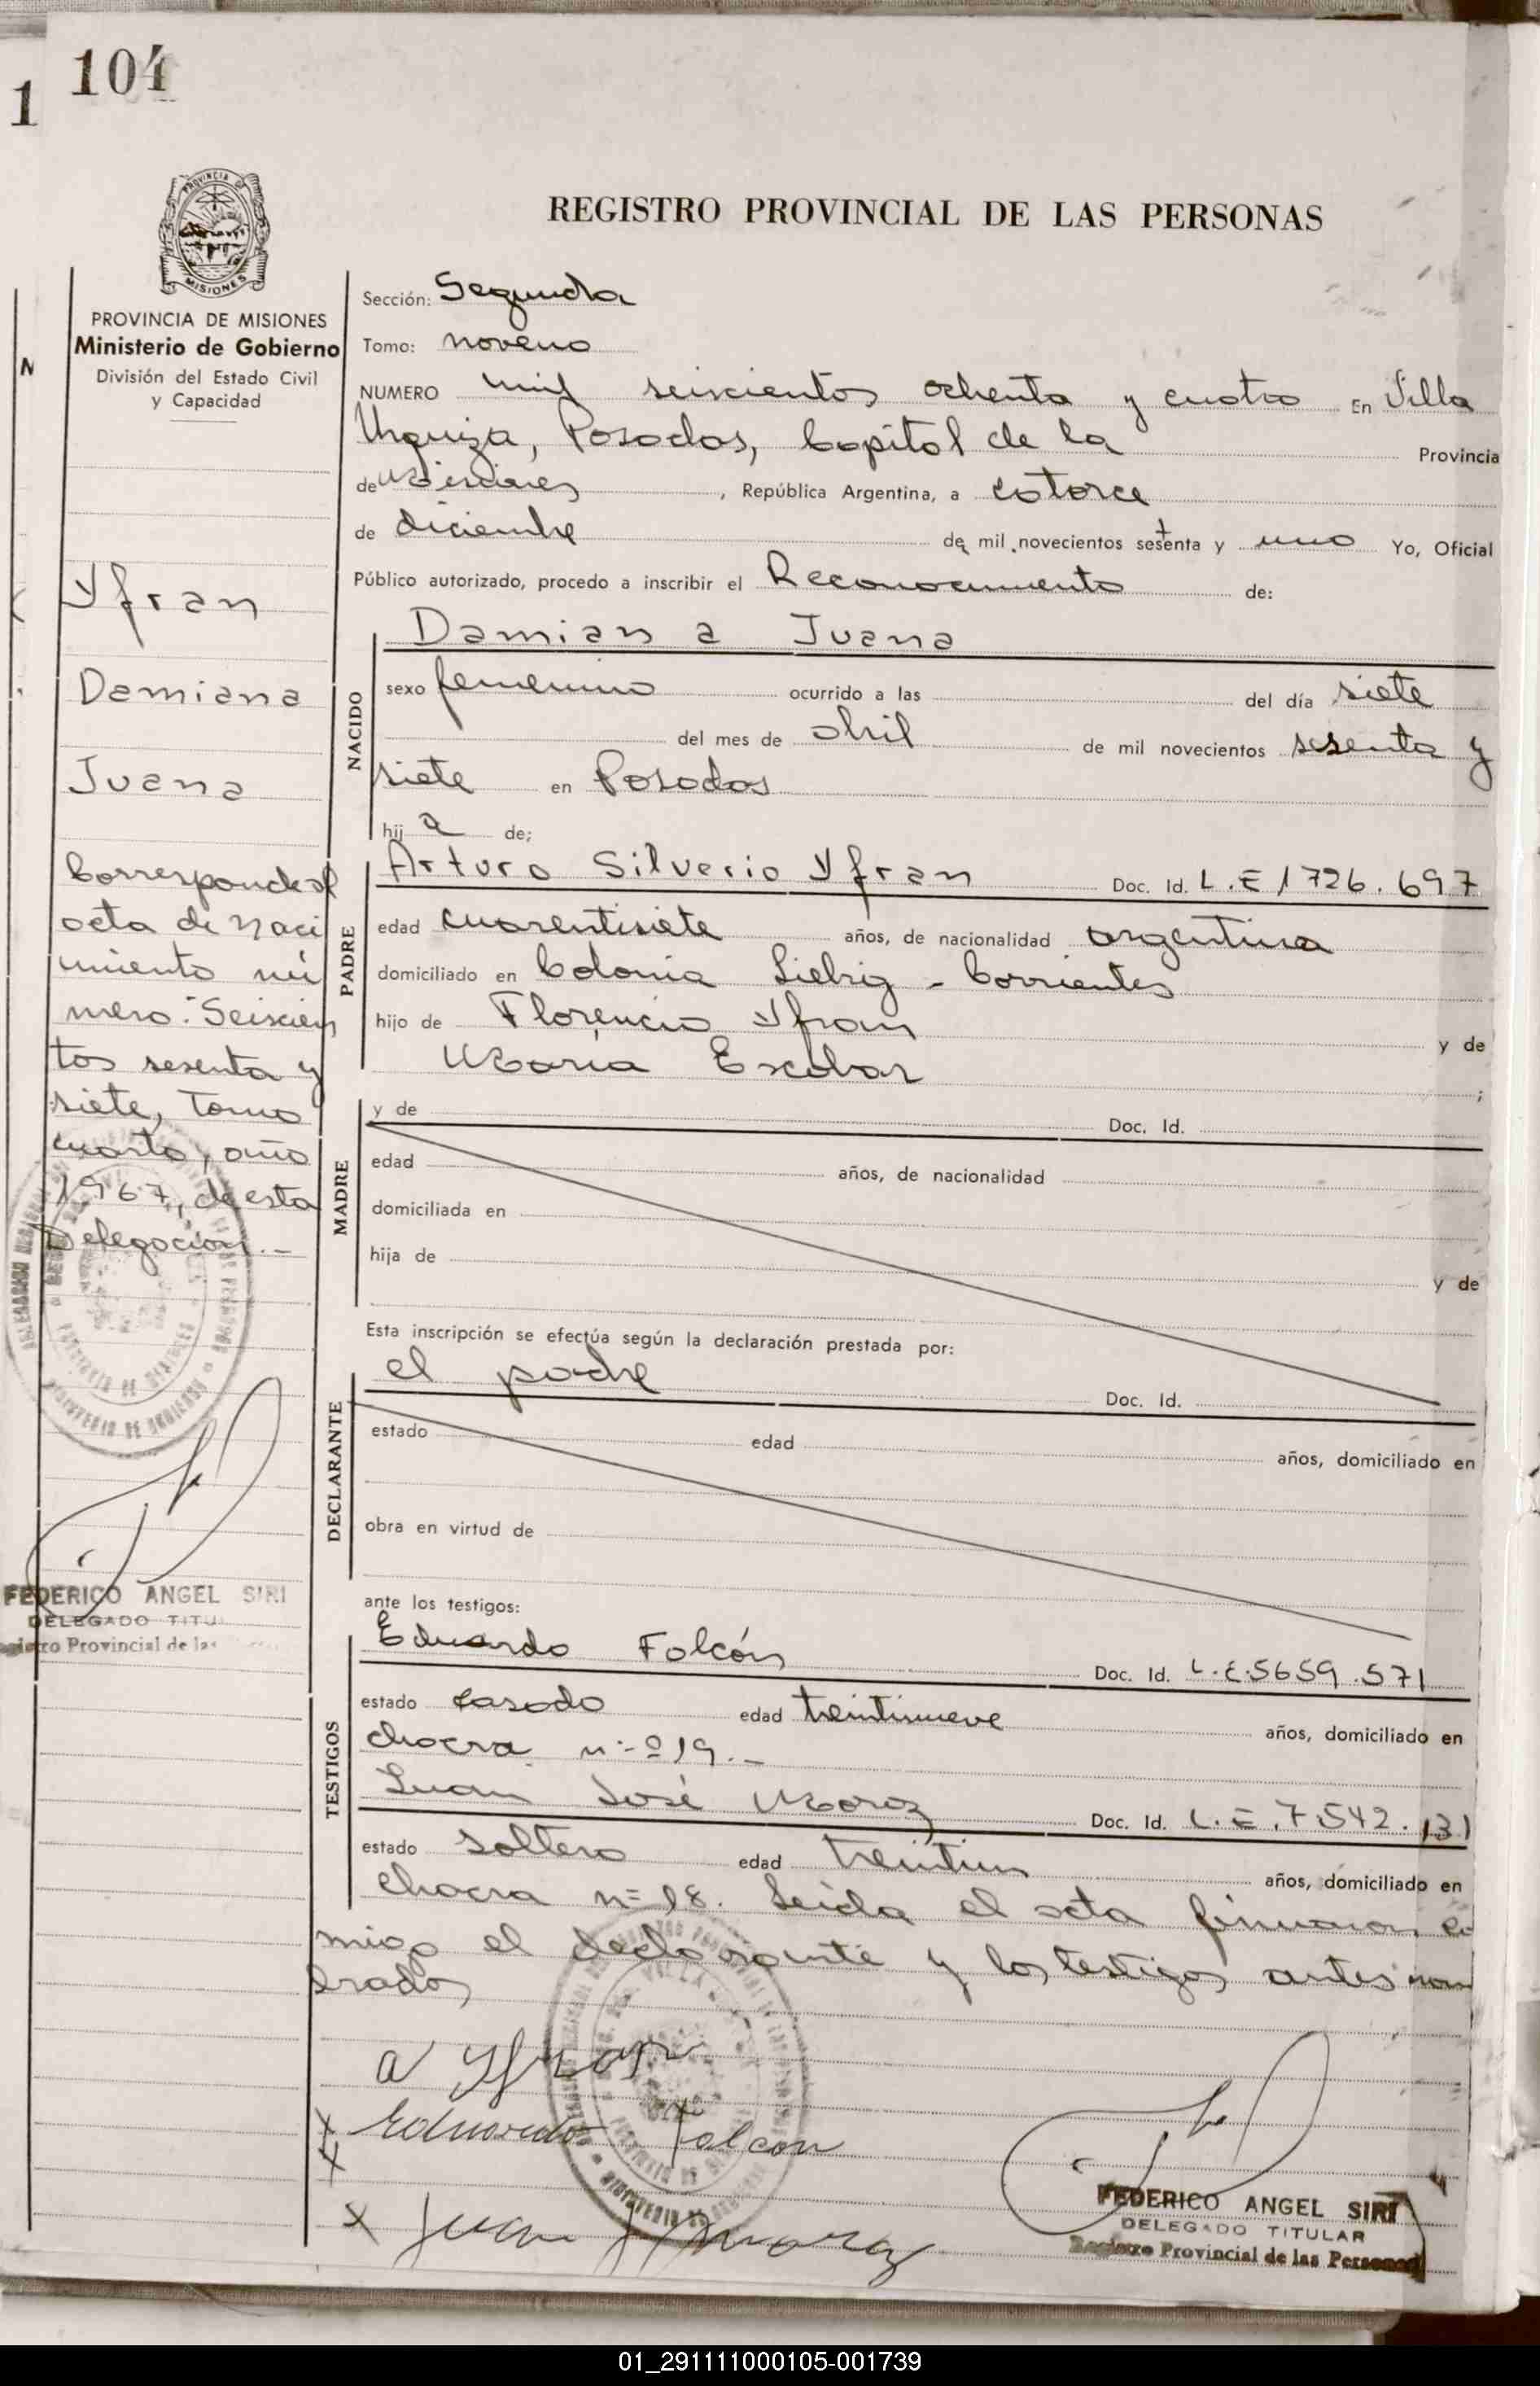 104
1
REGISTRO PROVINCIAL DE LAS PERSONAS
PROVINCIA DE
MISIONES
PROVINCIA DE MISIONES
Ministerio de Gobierno
División del Estado Civil
y Capacidad
Yfran
Damiana
Juana
Corresponde al
acta de Naci
miento nú
mero: Seiscien
tos sesenta y
siete, Tomo
cuarto, año
1967, de esta
Delegación.-
FEDERICO ANGEL SIRI
DELEGADO TITU
Provincial de las
Sección: Segunda
Tomo: noveno
NUMERO mil seiscientos ochenta y cuatro En Villa
Urquiza, Posadas, Capital de la Provincia
de Misiones, República Argentina, a catorce
de diciembre de mil novecientos setenta y uno Yo, Oficial
Público autorizado, procedo a inscribir el Reconocimiento de:
Damian a Juana
NACIDO
sexo femenino ocurrido a las del día siete
del mes de abril de mil novecientos sesenta y
siete en Posadas
hij a de;
PADRE
Arturo Silverio Yfran Doc. Id. L.E 1726.697
edad cuarentisiete años, de nacionalidad argentina
domiciliado en Colonia Liebig - Corrientes
hijo de Florencio Yfran y de
María Escobar ;
MADRE
y de Doc. Id.
edad años, de nacionalidad
domiciliada en
hija de y de
Esta inscripción se efectúa según la declaración prestada por:
DECLARANTE
el padre Doc. Id.
estado edad años, domiciliado en
obra en virtud de
ante los testigos:
TESTIGOS
Eduardo Falcón Doc. Id. L.E.5659.571
estado casado edad treintinueve años, domiciliado en
chacra n:º 19.-
Juan José Moroz Doc. Id. L.E.7.542.131
estado soltero edad treintiun años, domiciliado en
chacra nº 18. Leída el acta firmaron co
migo el declarante y los testigos antes nom
brados
A Yfran
Eduardo Falcon
Juan J Moroz
FEDERICO ANGEL SIRI
DELEGADO TITULAR
Registro Provincial de las Personas
01_291111000105-001739